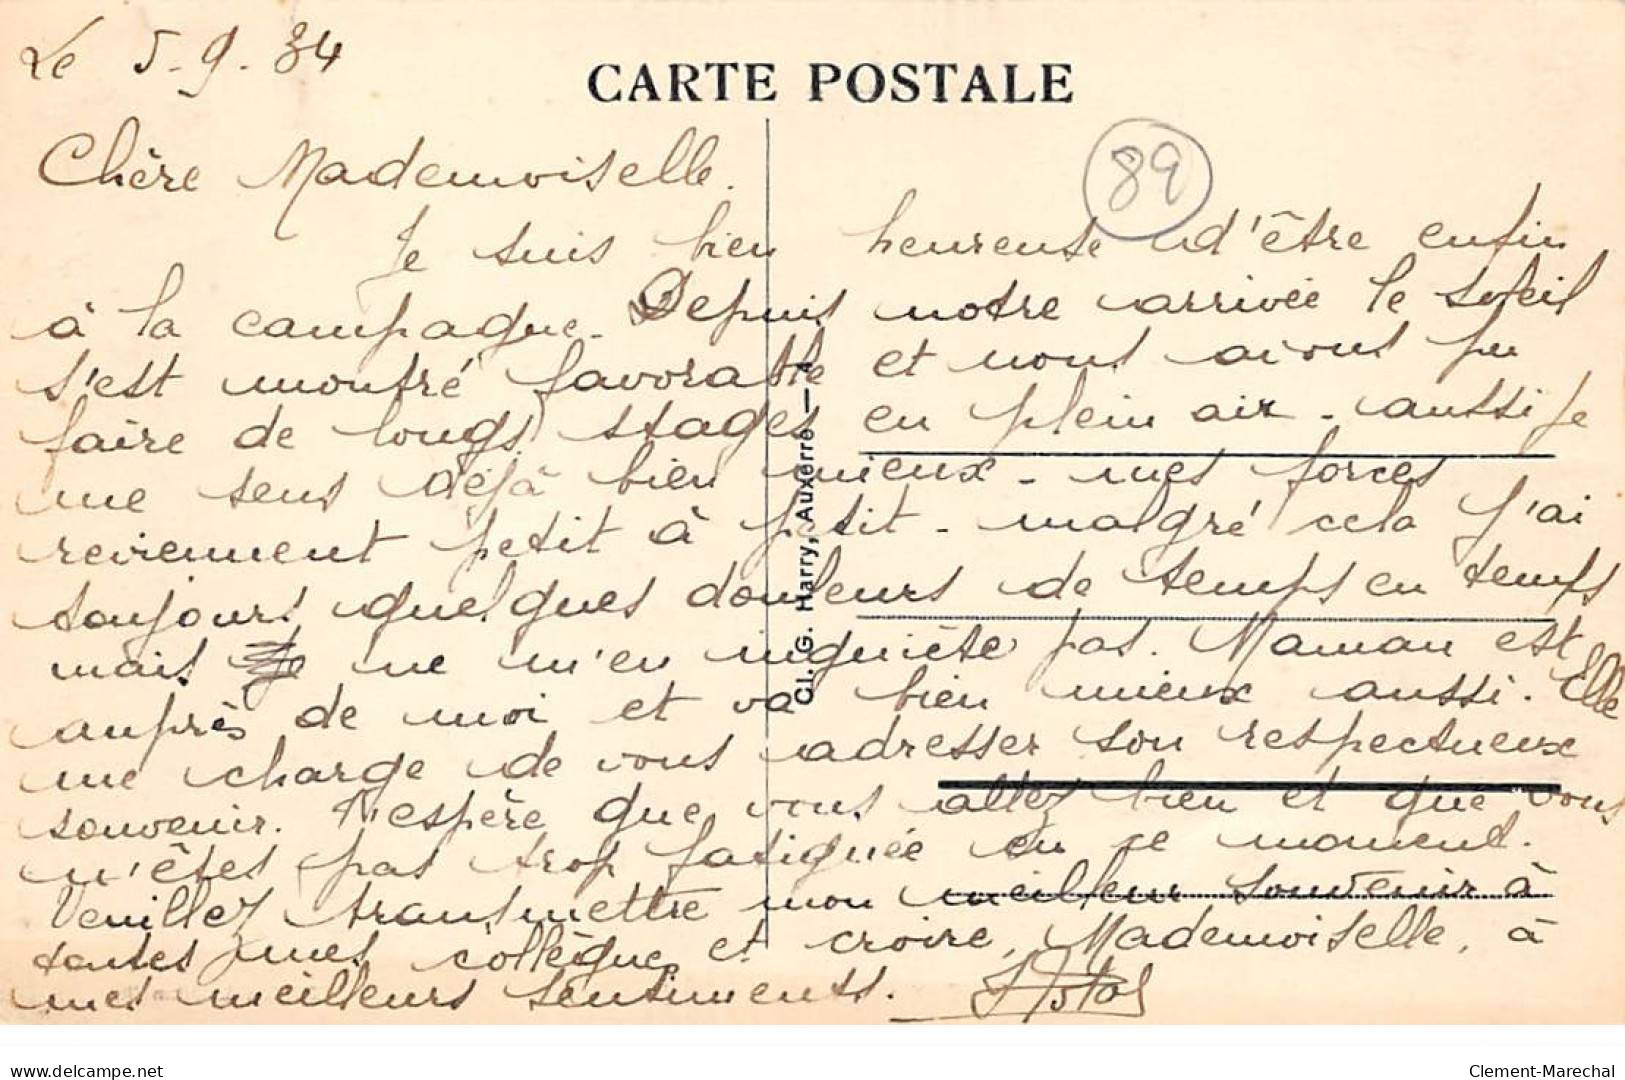 Le 5-9-34
CARTE POSTALE
89
Chère Mademoiselle.
Je suis bien heureuse d'être enfin
à la campagne. Depuis notre arrivée le soleil
s'est montré favorable et nous avons pu
faire de longs stages en plein air - aussi je
me sens déjà bien mieux - mes forces
reviennent petit à petit - malgré cela j'ai
toujours quelques douleurs de temps en temps
mais je ne m'en inquiète pas. Maman est
auprès de moi et va bien mieux aussi. Elle
me charge de vous adresser son respectueux
souvenir. J'espère que vous allez bien et que vous
n'êtes pas trop fatiguée en ce moment.
Veuillez transmettre mon meilleur souvenir à
toutes mes collègues et croire, Mademoiselle, à
mes meilleurs sentiments.
Cl. G. Harry, Auxerre
delcampe.net
Clement-Marechal